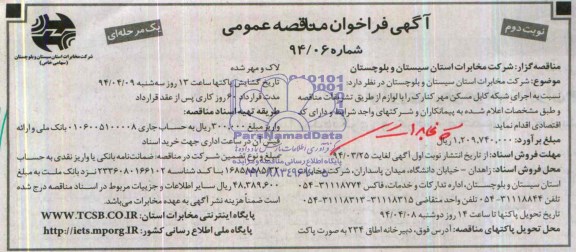 آگهی فراخوان مناقصه عمومی
شماره ۹۴/۰۶
نوبت دوم
یک مرحله‌ای
شرکت مخابرات استان سیستان و بلوچستان
(سهامی خاص)
مناقصه گزار: شرکت مخابرات استان سیستان و بلوچستان
موضوع: شرکت مخابرات استان سیستان و بلوچستان در نظر دارد:
نسبت به اجرای شبکه کابل مسکن مهر کنارک را با لوازم از طریق تشریفات مناقصه
و طبق مشخصات اعلام شده به پیمانکاران و شرکتهای واجد شرایط و دارای کد
اقتصادی اقدام نماید
مبلغ برآورد: ۱,۲۰۹,۷۴۰,۰۰۰ ریال
مهلت فروش اسناد: از تاریخ انتشار نوبت اول آگهی لغایت ۹۴/۰۳/۲۵
محل فروش اسناد: زاهدان - خیابان دانشگاه، میدان پاسداران، شرکت مخابرات
استان سیستان و بلوچستان، اداره تدارکات و خدمات، فاکس ۳۱۱۱۸۷۷۴-۰۵۴
تلفن ۳۱۱۱۸۸۴۴-۰۵۴ تلفن واحد متقاضی ۳۱۱۱۸۳۱۵-۳۱۱۱۸۳۱۳-۰۵۴
تاریخ تحویل پاکتها تا ساعت ۱۴ روز دوشنبه ۹۴/۰۴/۰۸
محل تحویل پاکتهای مناقصه: آدرس فوق، دبیرخانه اطاق ۲۳۴ به صورت پاکت
لاک و مهر شده
تاریخ گشایش پاکتها ساعت ۱۳ روز سه‌شنبه ۹۴/۰۴/۰۹
مدت قرارداد روز کاری پس از عقد قرارداد
طریقه تهیه اسناد مناقصه:
واریز مبلغ ۳۰۰,۰۰۰ ریال به حساب جاری ۰۱۰۶۰۰۵۱۰۰۰۰۸ بانک ملی و ارائه
فیش آن در ساعات اداری جهت خرید اسناد
مبلغ و نوع تضمین شرکت در مناقصه: ضمانت‌نامه بانکی یا واریز نقدی به حساب
با کد شناسه نزد بانک ملت به مبلغ
۴۸,۳۸۹,۶۰۰ ریال سایر اطلاعات و جزییات مربوط در اسناد مناقصه درج شده
است ضمناً هزینه نشر آگهی به عهده مخابرات می‌باشد.
پایگاه اینترنتی مخابرات استان: WWW.TCSB.CO.IR
پایگاه ملی اطلاع رسانی کشور: http://iets.mporg.IR
ParsNamadData
پایگاه اطلاع رسانی مناقصه و مزایده